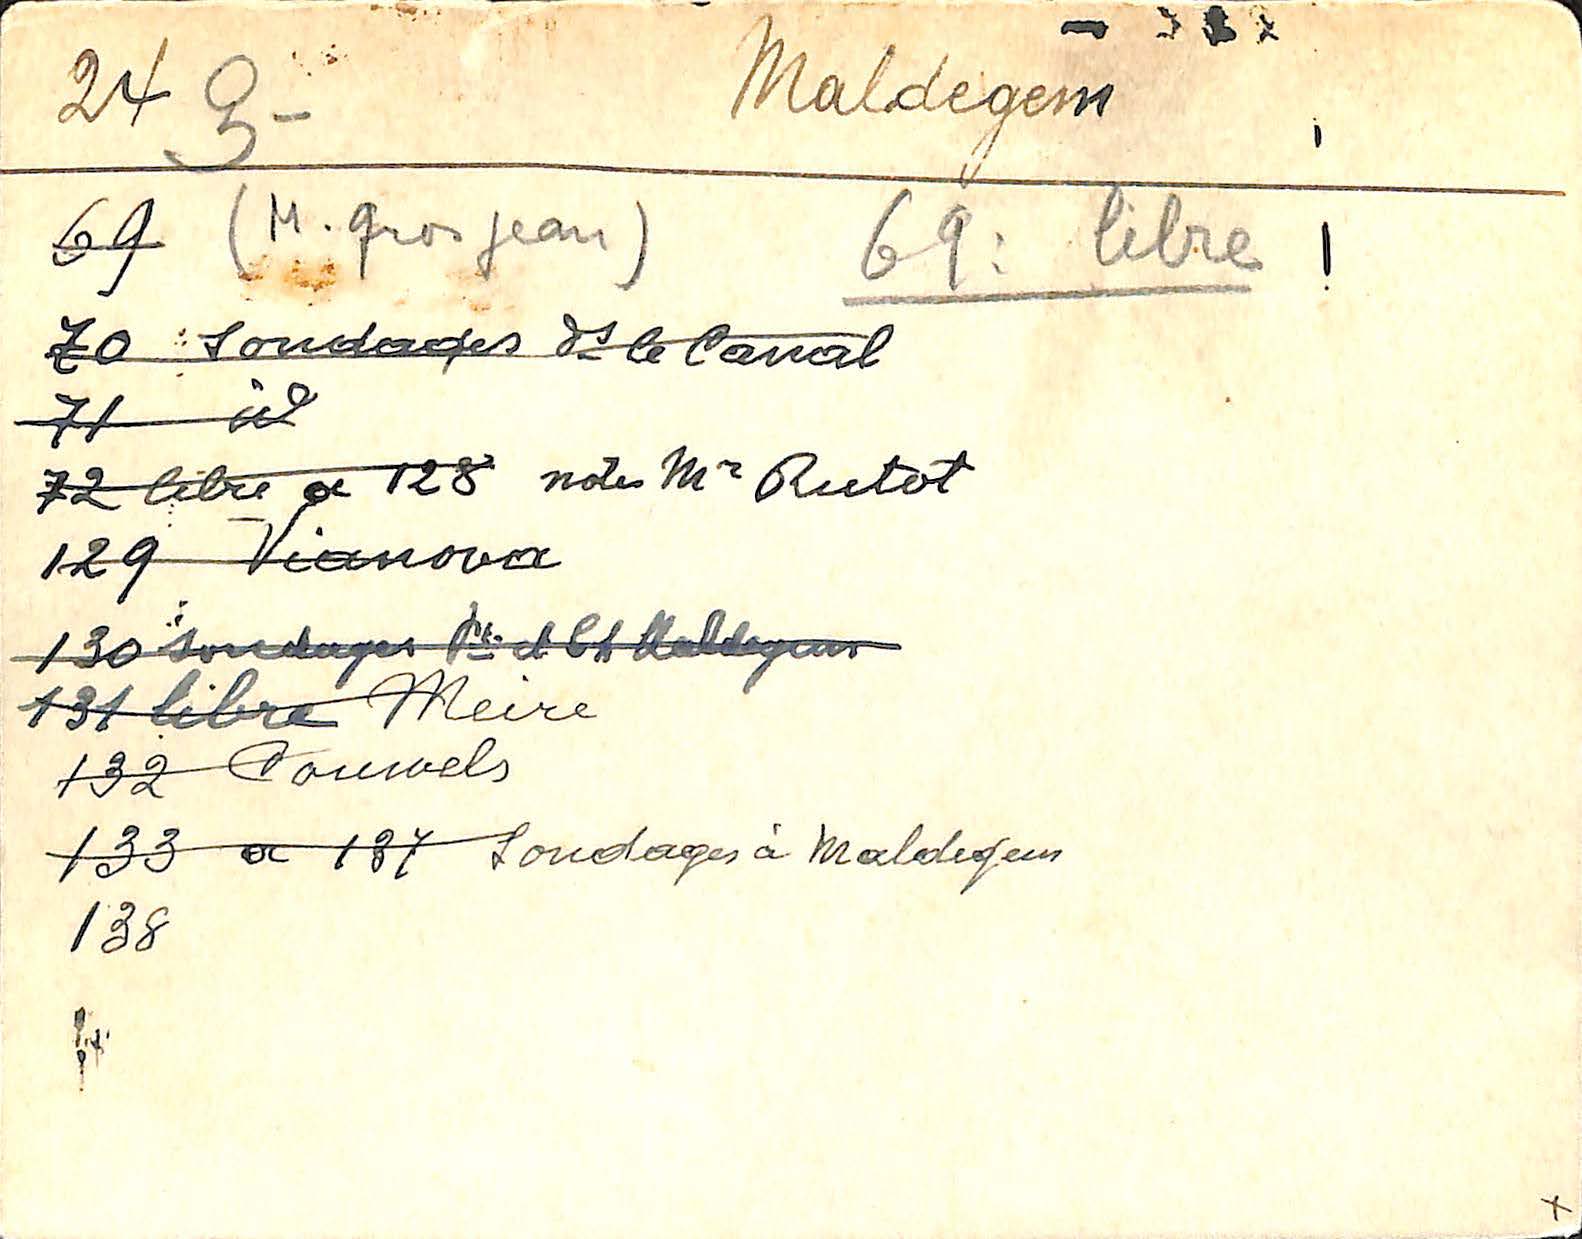 24 Maldegem
69 (M. Grosjean) 69: libre !
70 Sondages ds le Canal
71 id
72 libre a 128 notes Mr Rutot
129 Vianova
130 Sondages Maldegem
131 libre Meire
132 Pauwels
133 a 137 Sondages à Maldegem
138